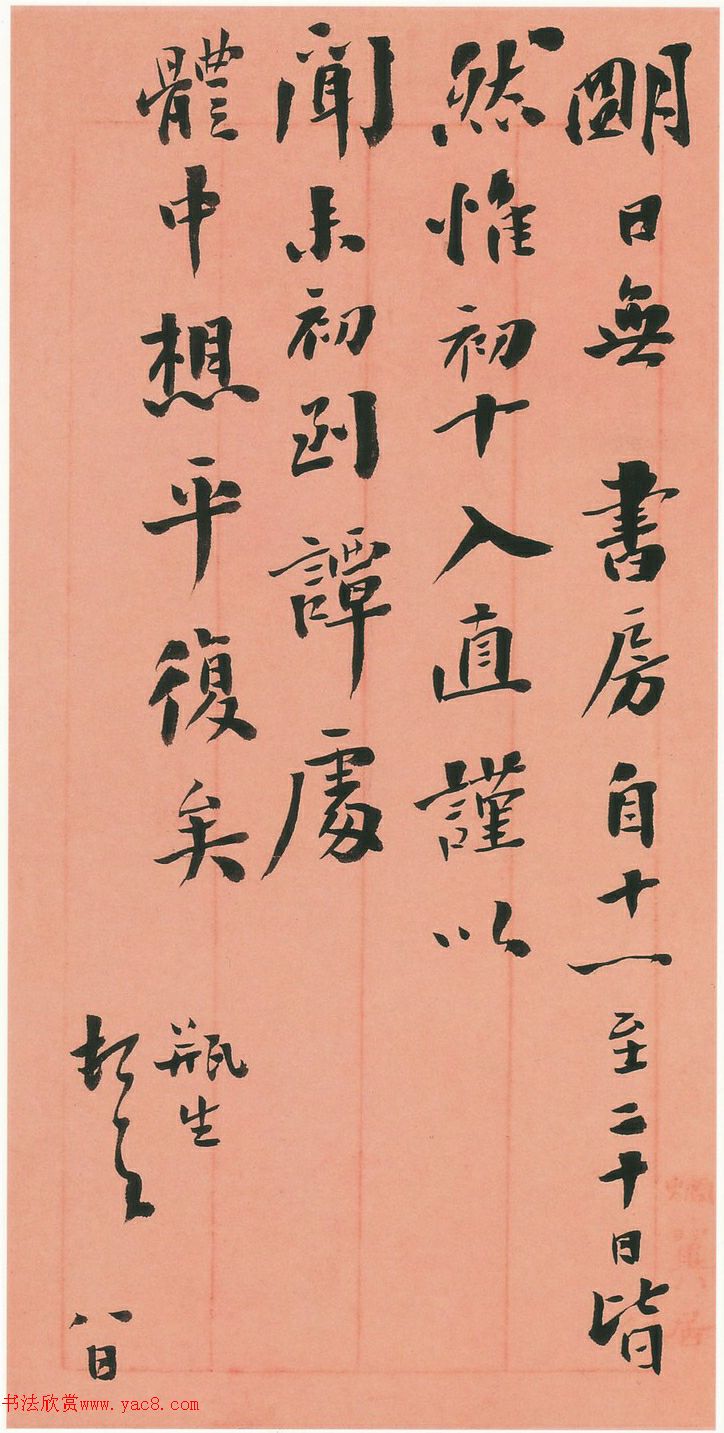 朙日無 書房自十一至二十日皆
然惟初十入直謹以
聞未初到譚處
體中想平復矣
瓶生
八日
书法欣赏www.yac8.com